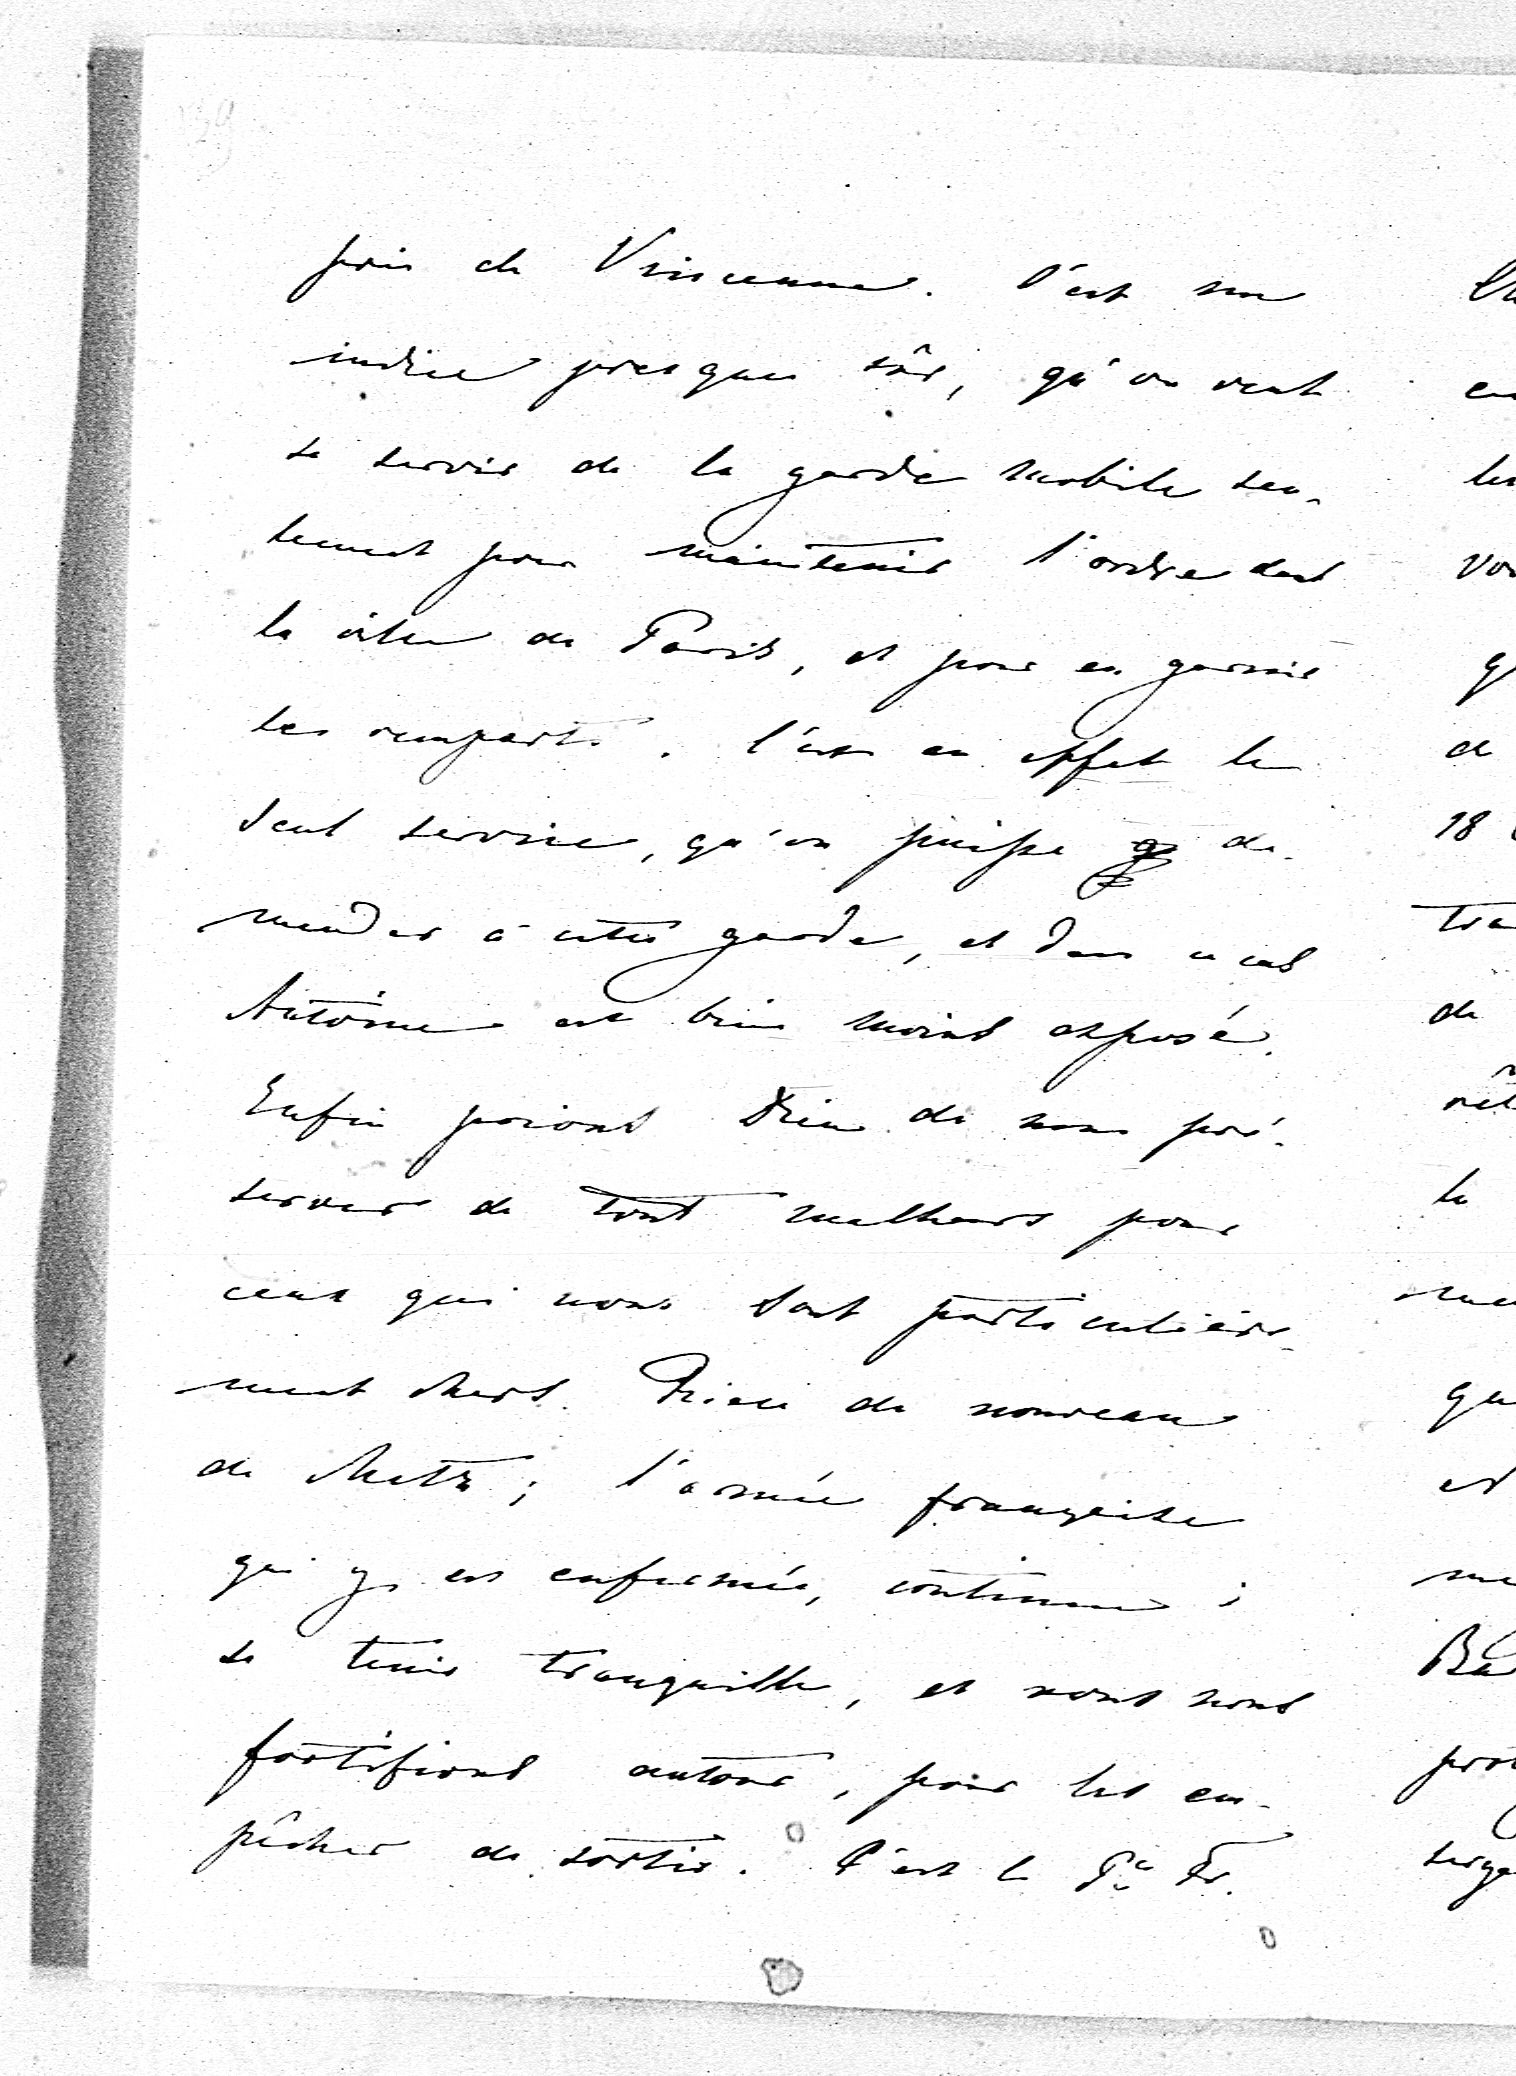 près de Vincennes. C'est un
indice presque sûr, qu'on veut
se servir de la garde mobile seu-
lement pour maintenir l'ordre dans
la ville de Paris, et pour en garnir
les remparts. C'est en effet le
seul service, qu'on puisse de-
mander à cette garde, et dans ce cas
Antoine est bien moins exposé.
Enfin prions Dieu de nous pré-
server de tout malheurs pour
ceux qui nous sont particulière-
ment chers. Rien de nouveau
de Metz; l'armée française
qui y est enfermée, continue à
se tenir tranquille, et nous nous
fortifions autour, pour les em-
pêcher de sortir. C'est le Pce Fr.
18